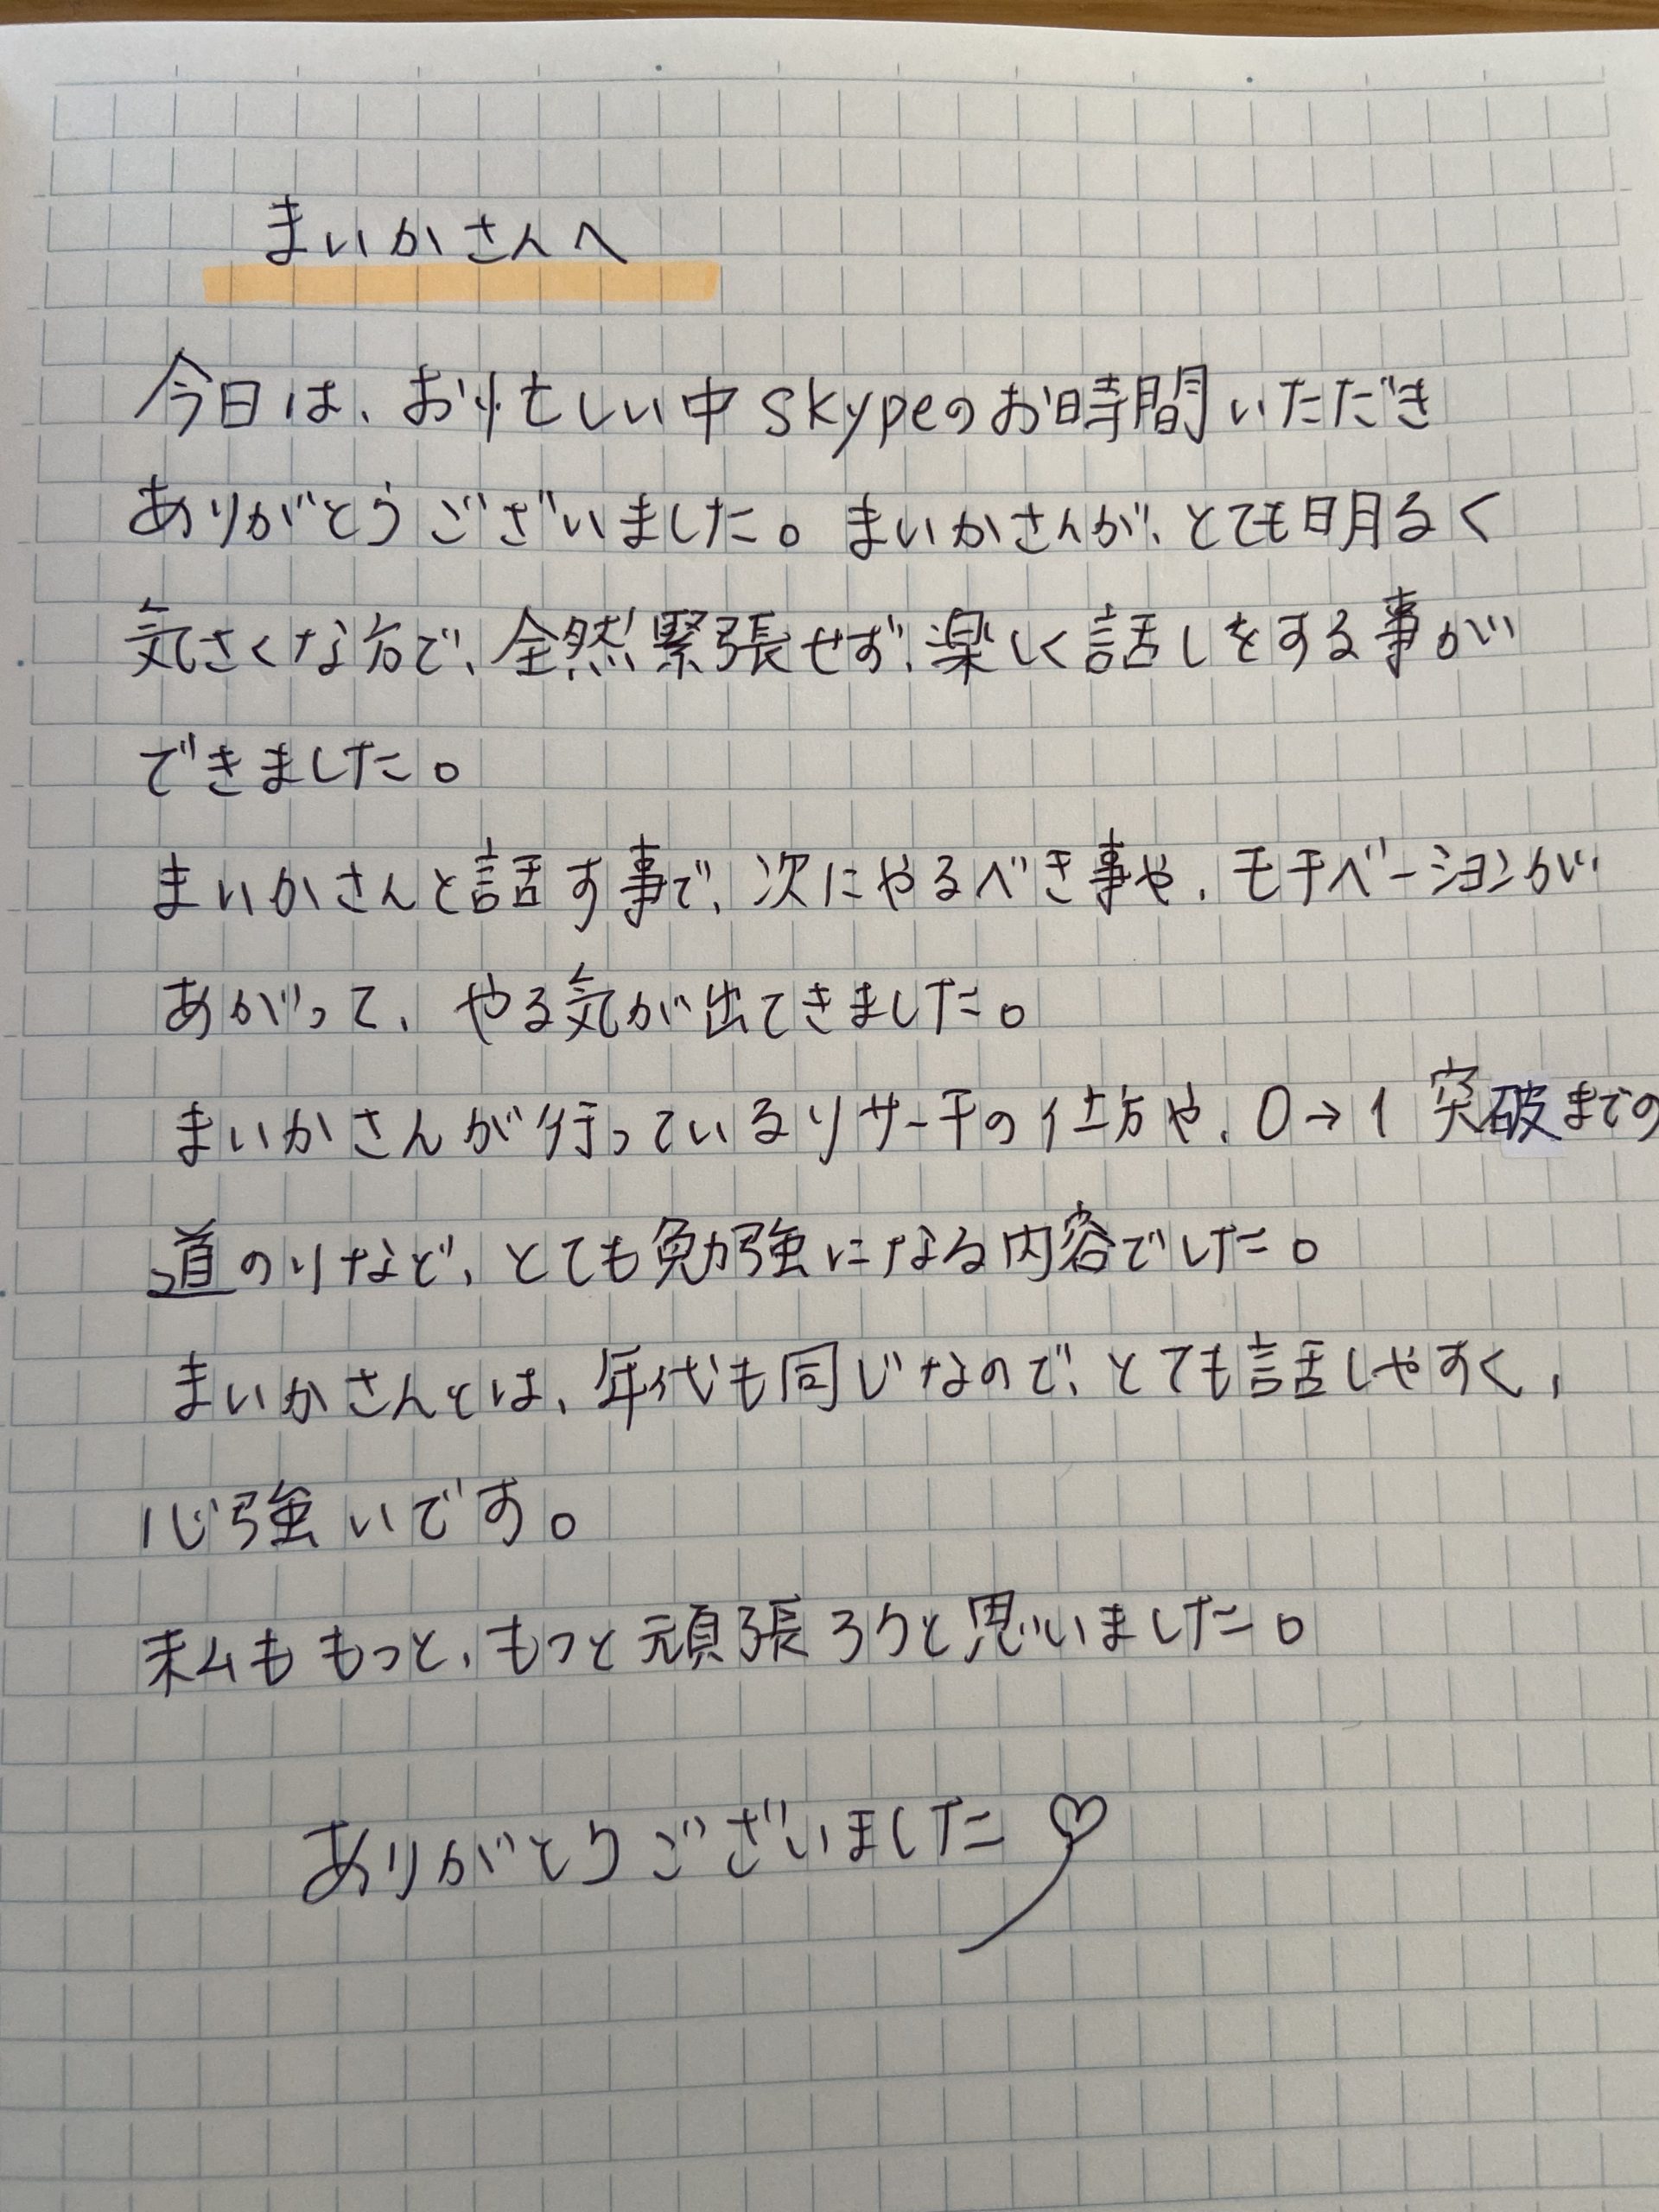 まいかさんへ
今日は、お忙しい中skypeのお時間いただき
ありがとうございました。まいかさんが、とても明るく
気さくな方で、全然緊張せず、楽しく話しをする事が
できました。
まいかさんと話す事で、次にやるべき事や、モチベーションが
あがって、やる気が出てきました。
まいかさんが行っているリサーチの仕方や、0→1突破までの
道のりなど、とても勉強になる内容でした。
まいかさんとは、年代も同じなので、とても話しやすく、
心強いです。
私ももっと、もっと頑張ろうと思いました。
ありがとうございました♡